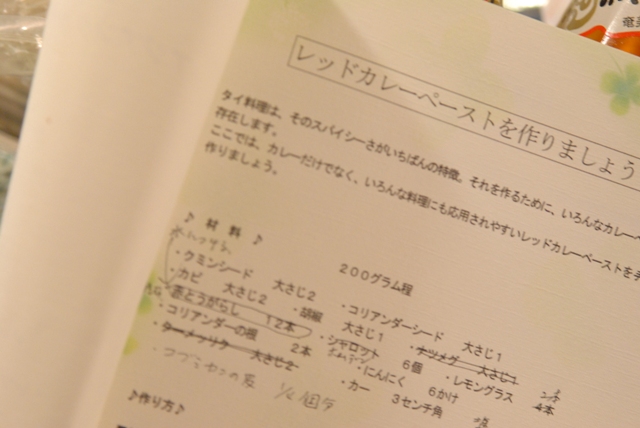 レッドカレーペーストを作りましょう
タイ料理は、そのスパイシーさがいちばんの特徴。それを作るために、いろんなカレーペ
存在します。
ここでは、カレーだけでなく、いろんな料理にも応用されやすいレッドカレーペーストを手
作りましょう。
♪ 材 料 ♪
200グラム程
・クミンシード 大さじ2 ・コリアンダーシード 大さじ1
・カピ 大さじ2 ・胡椒 大さじ1 ・ナツメグ 大さじ1
・赤とうがらし 12本 ・シャロット 6個 ・レモングラス 4本
・コリアンダーの根 2本 ・にんにく 6かけ
・ターメリック 大さじ2 ・カー 3センチ角
・コブミカンの皮 1/2個分
♪作り方♪